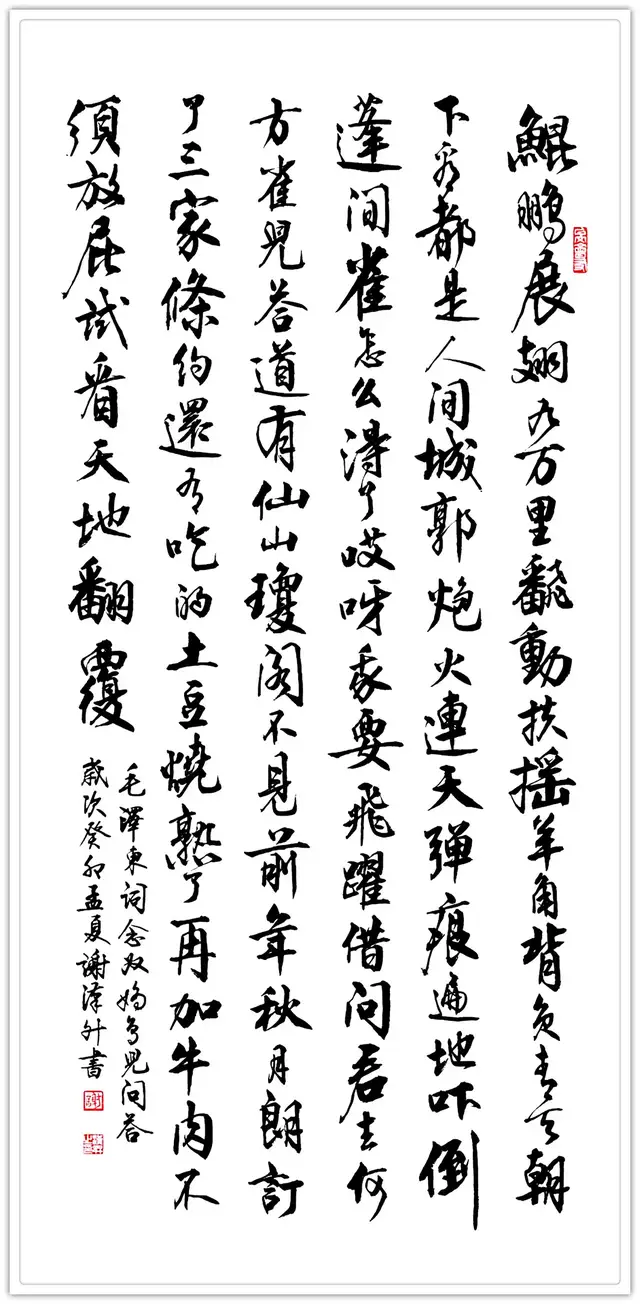 鯤鵬展翅九万里翻動扶摇羊角背负青天朝
下看都是人间城郭炮火連天弹痕遍地吓倒
蓬间雀怎么得了哎呀我要飛躍借问君去何
方雀兒答道有仙山瓊阁不見前年秋月朗訂
了三家條约還有吃的土豆燒熟了再加牛肉不
須放屁試看天地翻覆
毛澤東词念奴娇鸟兒问答
歲次癸卯孟夏謝澤升書